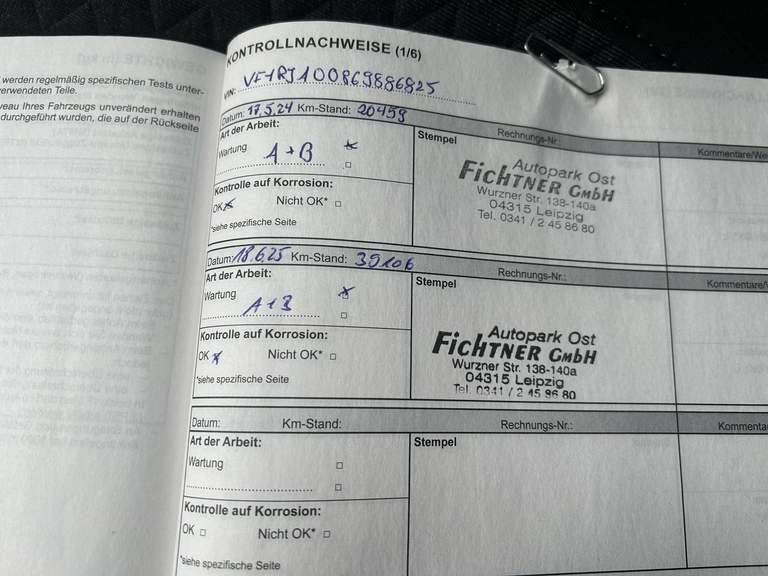 werden regelmäßig spezifischen Tests unter-
verwendeten Teile.
veau Ihres Fahrzeugs unverändert erhalten
durchgeführt wurden, die auf der Rückseite
KONTROLLNACHWEISE (1/6)
VIN: VF1RJ100869886825
Datum: 17.5.24 Km-Stand: 20459 Rechnungs-Nr.: Kommentare/We
Art der Arbeit: Stempel
Wartung A+B
Kontrolle auf Korrosion:
OK Nicht OK*
*siehe spezifische Seite
Autopark Ost
FICHTNER GMBH
Wurzner Str. 138-140a
04315 Leipzig
Tel. 0341 / 2 45 86 80
Datum: 18.6.25 Km-Stand: 39106 Rechnungs-Nr.: Kommentare/
Art der Arbeit: Stempel
Wartung A+B
Kontrolle auf Korrosion:
OK Nicht OK*
*siehe spezifische Seite
Autopark Ost
FICHTNER GMBH
Wurzner Str. 138-140a
04315 Leipzig
Tel. 0341 / 2 45 86 80
Datum: Km-Stand: Rechnungs-Nr.: Kommenta
Art der Arbeit: Stempel
Wartung
Kontrolle auf Korrosion:
OK Nicht OK*
*siehe spezifische Seite